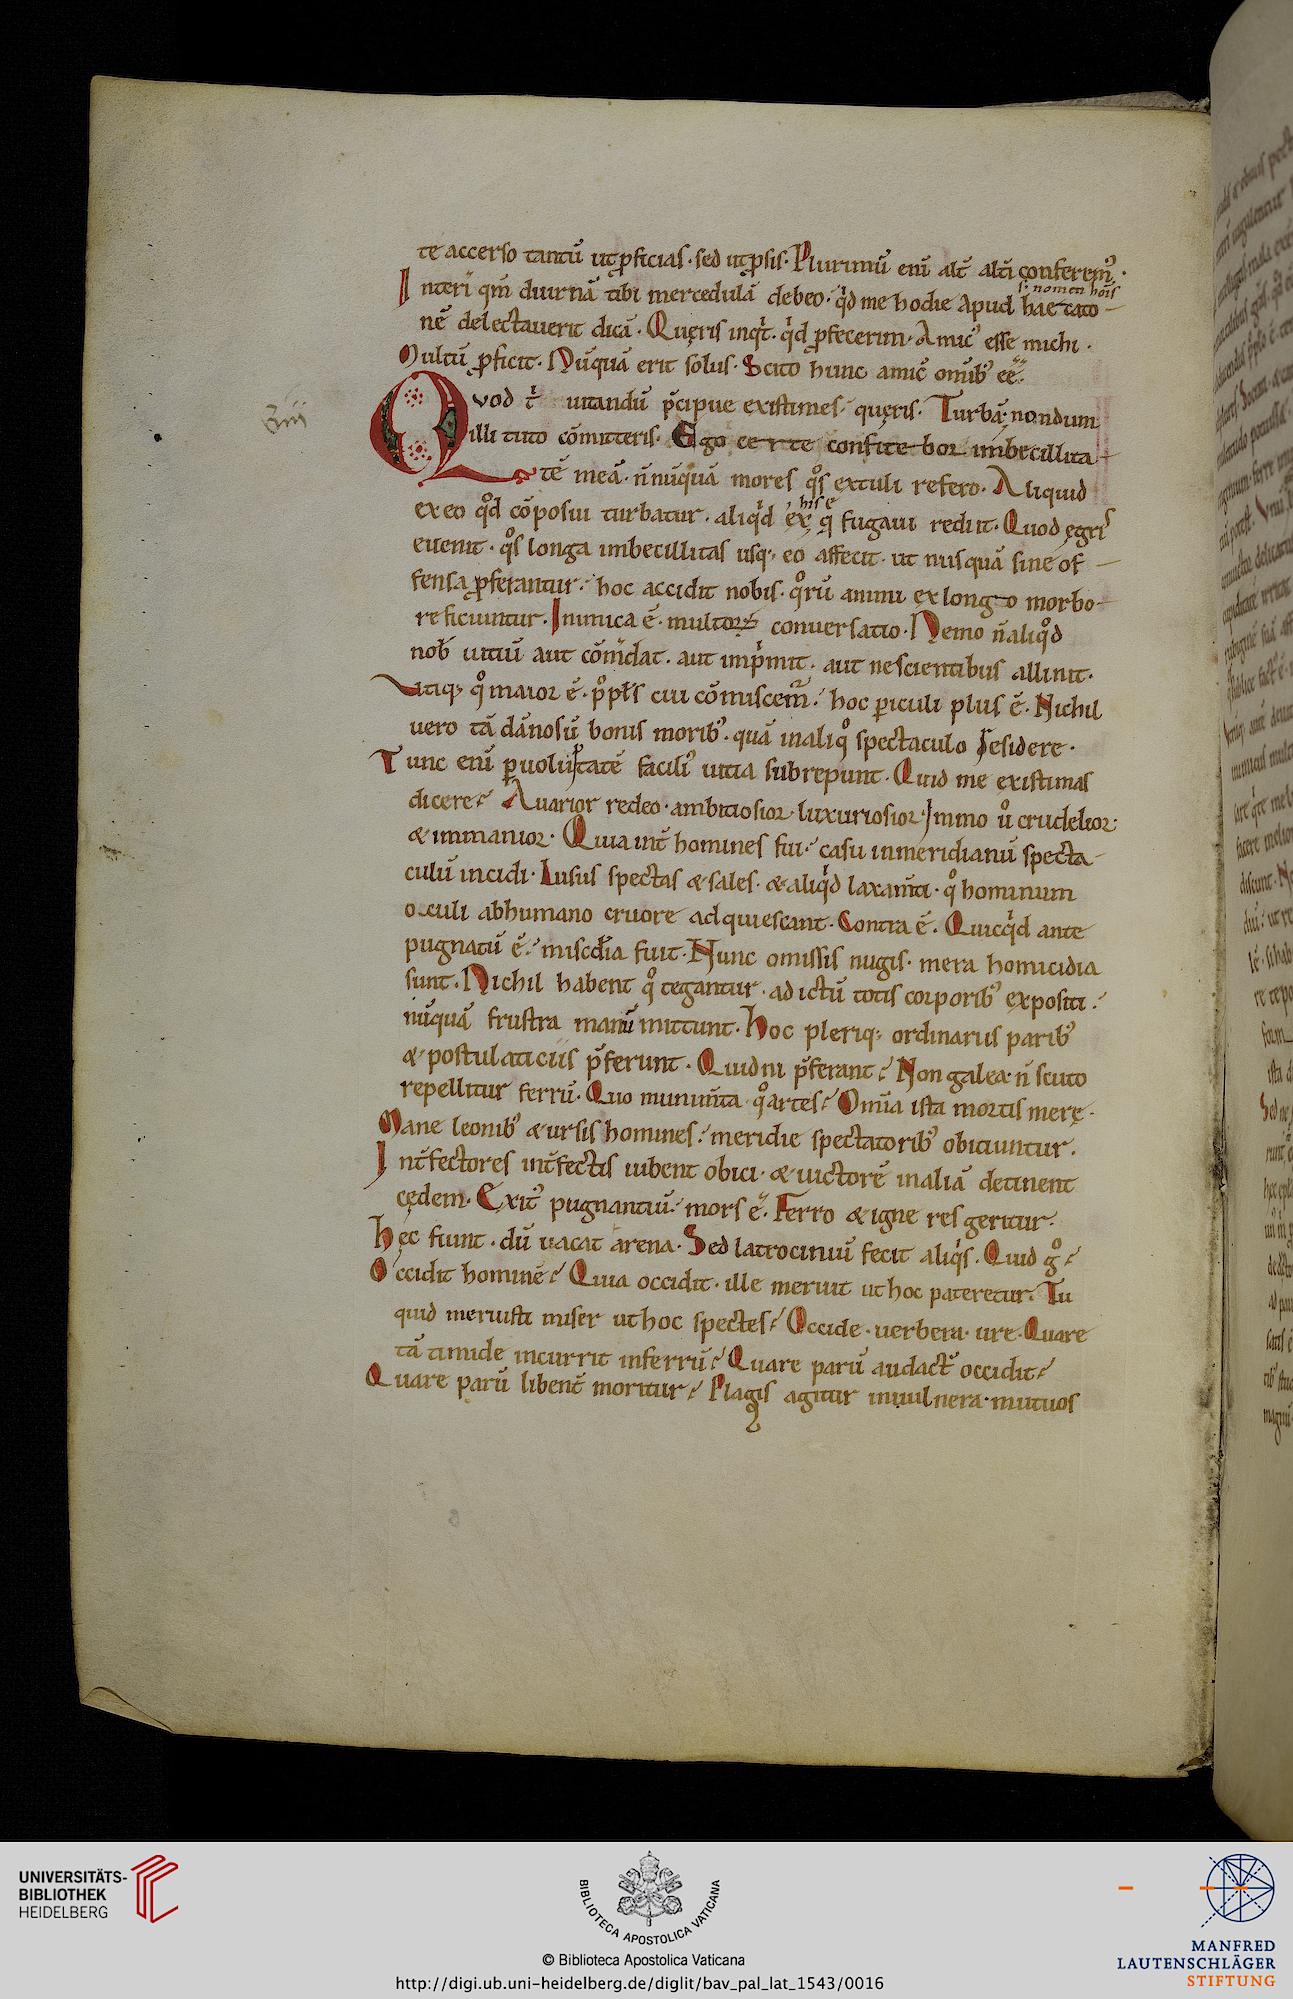 te accerso tantū ut ꝓficias · sed ut ꝓsis · Plurimū enī alt̄ alt̄i conferem᷒ ·
s· nomen hōis
Interī qm̄ diurnā tibi mercedulā debeo · qͥd me hodie apud haecato
nē delectauerit dicā · Quęris inqͥt · qͥd ꝓfecerim · Amic᷒ esse michi ·
Multū ꝓficit · Nūquā erit solus · Scito hunc amicū omīb᷒ eē ·
Quod t̄ uitandū p̄cipue existimes quęris · Turbā · nondum
illi tuto cōmitteris · Ego certe confitebor imbecillita
tē meā · n̄nūquā mores qͦs extuli refero · Aliquid
his ē
ex eo qͦd cōposui turbatur · aliqͥd ex q̄ fugaui redit · Quod ęgris
euenit · qͦs longa imbecillitas usq; eo affecit · ut nusquā sine of
fensa ꝓferantur · hoc accidit nobis · qͦrū animi ex longo morbo
reficiuntur · Inimica ē · multoꝝ conuersatio · Nemo n̄ aliqͦd
nob̄ uitiū aut cōm̄dat · aut impͥmit · aut nescientibus allinit ·
Vtiq; qͦ maior ē · pͦpl̄s cui cōmiscem᷒ · hoc periculi plus ē · Nichil
uero tā dānosū bonis morib᷒ · quā in aliqͦ spectaculo desidere ·
Tunc enī ꝑ uoluptatē facili᷒ uitia subrepunt · Quid me existimas
dicere? Auarior redeo · ambitiosior · luxuriosior · Immo ūͦ crudelior
& inmanior · Quia int̄ homines fui · casu in meridianū specta
culū incidi · Lusus spectas & sales · & aliqͥd laxam̄ti · qͦ hominum
oculi ab humano cruore adquiescant · Contra ē · Quicqͥd ante
pugnatū ē · misc̄dia fuit · Nunc omissis nugis · mera homicidia
sunt · Nichil habent qͦ tegantur · ad ictū totis corporib᷒ expositi ·
nūquā frustra manū mittunt · Hoc pleriq; ordinariis parib᷒
& postulaticiis p̄ferunt · Quidni p̄ferant? Non galea · n̄ scuto
repellitur ferrū · Quo munim̄ta · qͦ artes? Omīa ista mortis merę ·
Mane leonib᷒ & ursis homines · meridie spectatorib᷒ obiciuntur ·
Int̄fectores int̄fectis iubent obici · & uictorē in aliā detinent
cędem · Exit᷒ pugnantiū · mors ē · Ferro & igne res geritur ·
Hęc fiunt · dū uacat arena · Sed latrociniū fecit aliqͥs · Quid gͦ?
Occidit hominē? Quia occidit · ille meruit ut hoc pateretur · Tu
quid meruisti miser ut hoc spectes? Occide · uerbera · ure · Quare
tā timide incurrit in ferrū? Quare parū audact̄ occidit?
Quare parū libent̄ moritur? Plagis agitur in uulnera · mutuos
UNIVERSITÄTS-
BIBLIOTHEK
HEIDELBERG
BIBLIOTECA APOSTOLICA VATICANA
© Biblioteca Apostolica Vaticana
http://digi.ub.uni-heidelberg.de/diglit/bav_pal_lat_1543/0016
MANFRED
LAUTENSCHLÄGER
STIFTUNG